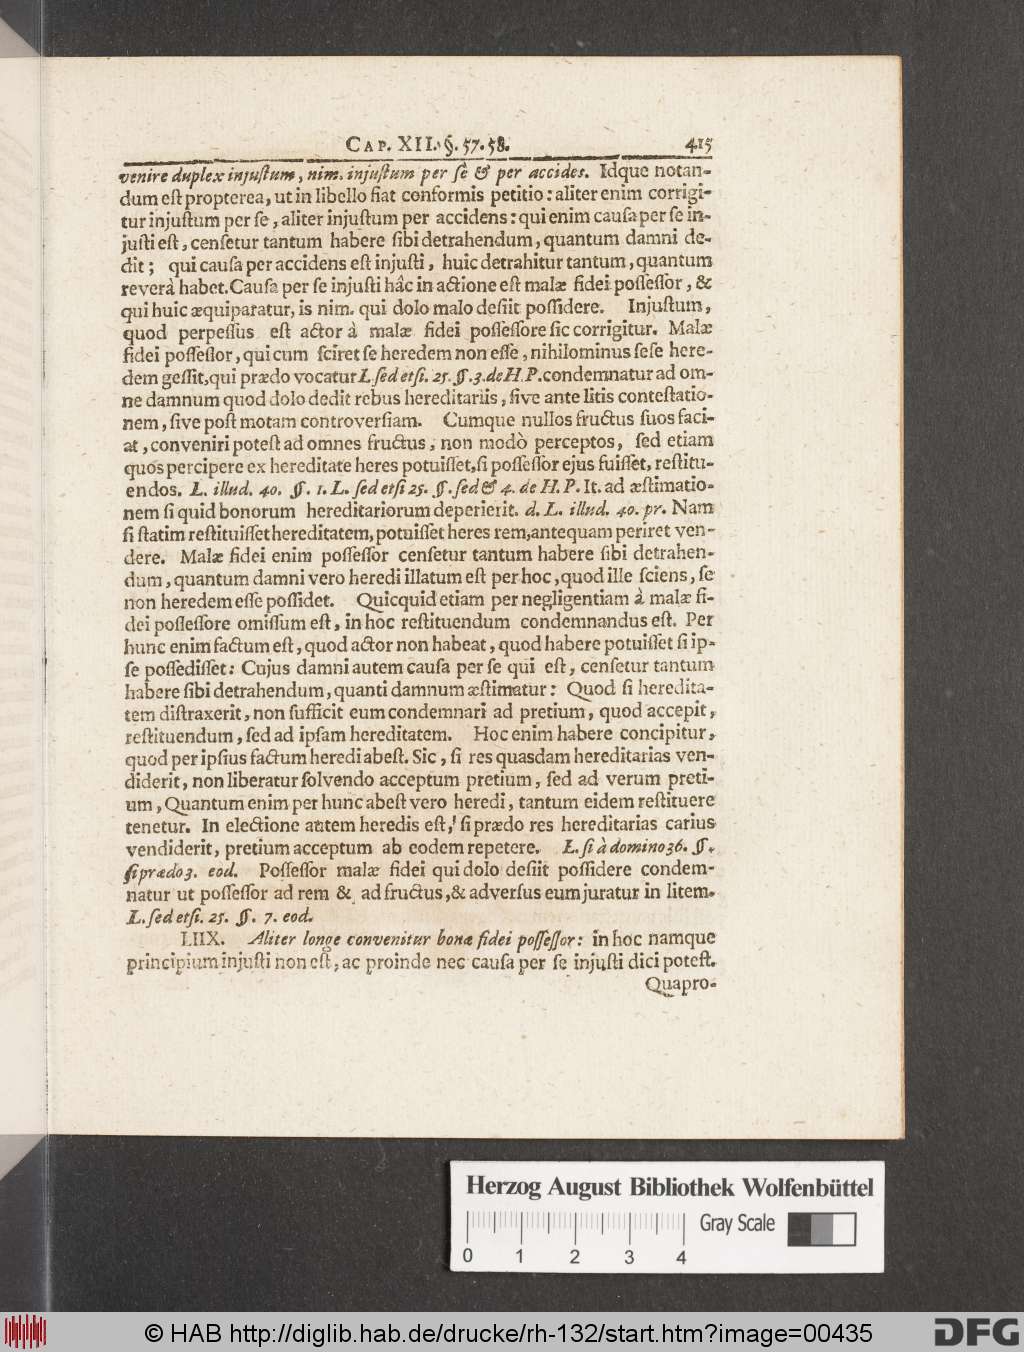 CAP. XII. §. 57. 58. 415
venire duplex injuſtum, nim. injuſtum per ſe & per accides. Idque notan-
dum eſt propterea, ut in libello fiat conformis petitio: aliter enim corrigi-
tur injuſtum per ſe, aliter injuſtum per accidens: qui enim cauſa per ſe in-
juſti eſt, cenſetur tantum habere ſibi detrahendum, quantum damni de-
dit; qui cauſa per accidens eſt injuſti, huic detrahitur tantum, quantum
reverà habet. Cauſa per ſe injuſti hâc in actione eſt malæ fidei poſſeſſor, &
qui huic æquiparatur, is nim. qui dolo malo deſiit poſſidere. Injuſtum,
quod perpeſſus eſt actor à malæ fidei poſſeſſore ſic corrigitur. Malæ
fidei poſſeſſor, qui cum ſciret ſe heredem non eſſe, nihilominus ſeſe here-
dem geſſit, qui prædo vocatur L. ſed etſi. 25. §. 3. de H. P. condemnatur ad om-
ne damnum quod dolo dedit rebus hereditariis, ſive ante litis conteſtatio-
nem, ſive poſt motam controverſiam. Cumque nullos fructus ſuos faci-
at, conveniri poteſt ad omnes fructus, non modò perceptos, ſed etiam
quos percipere ex hereditate heres potuiſſet, ſi poſſeſſor ejus fuiſſet, reſtitu-
endos. L. illud. 40. §. 1. L. ſed etſi 25. §. ſed & 4. de H. P. It. ad æſtimatio-
nem ſi quid bonorum hereditariorum deperierit. d. L. illud. 40. pr. Nam
ſi ſtatim reſtituiſſet hereditatem, potuiſſet heres rem, antequam periret ven-
dere. Malæ fidei enim poſſeſſor cenſetur tantum habere ſibi detrahen-
dum, quantum damni vero heredi illatum eſt per hoc, quod ille ſciens, ſe
non heredem eſſe poſſidet. Quicquid etiam per negligentiam à malæ fi-
dei poſſeſſore omiſſum eſt, in hoc reſtituendum condemnandus eſt. Per
hunc enim factum eſt, quod actor non habeat, quod habere potuiſſet ſi ip-
ſe poſſediſſet: Cujus damni autem cauſa per ſe qui eſt, cenſetur tantum
habere ſibi detrahendum, quanti damnum æſtimatur: Quod ſi heredita-
tem diſtraxerit, non ſufficit eum condemnari ad pretium, quod accepit,
reſtituendum, ſed ad ipſam hereditatem. Hoc enim habere concipitur,
quod per ipſius factum heredi abeſt. Sic, ſi res quasdam hereditarias ven-
diderit, non liberatur ſolvendo acceptum pretium, ſed ad verum preti-
um, Quantum enim per hunc abeſt vero heredi, tantum eidem reſtituere
tenetur. In electione autem heredis eſt, ſi prædo res hereditarias carius
vendiderit, pretium acceptum ab eodem repetere. L. ſi à domino 36. §.
ſi prædo 3. eod. Poſſeſſor malæ fidei qui dolo deſiit poſſidere condem-
natur ut poſſeſſor ad rem & ad fructus, & adverſus eum juratur in litem.
L. ſed etſi. 25. §. 7. eod.
LIIX. Aliter longe convenitur bonæ fidei poſſeſſor: in hoc namque
principium injuſti non eſt, ac proinde nec cauſa per ſe injuſti dici poteſt.
Quapro-
Herzog August Bibliothek Wolfenbüttel
Gray Scale
0 1 2 3 4
© HAB http://diglib.hab.de/drucke/rh-132/start.htm?image=00435
DFG